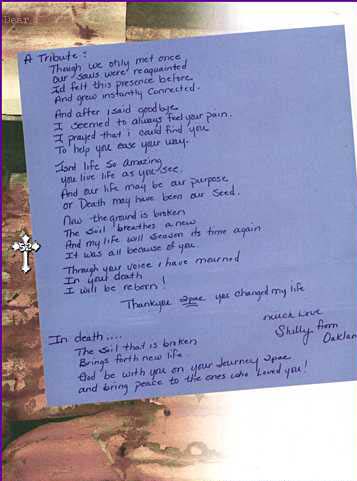 Dear
A Tribute:
Though we only met once
our souls were reaquainted
Id felt this presence before
And grew instantly connected.
And after i said goodbye
I seemed to always feel your pain.
I prayed that i could find you
To help you ease your way.
Isnt life so amazing
you live life as you see.
And our life may be our purpose
or Death may have been our seed.
Now the ground is broken
The soil breathes a new
And my life will season its time again
It was all because of you.
Through your voice i have mourned
In your death
I will be reborn!
Thankyou 2pac you changed my life
much love
Shelly from
Oaklan
In death....
The soil that is broken
Brings forth new life.
And be with you on your Journey 2pac
and bring peace to the ones who loved you!
52